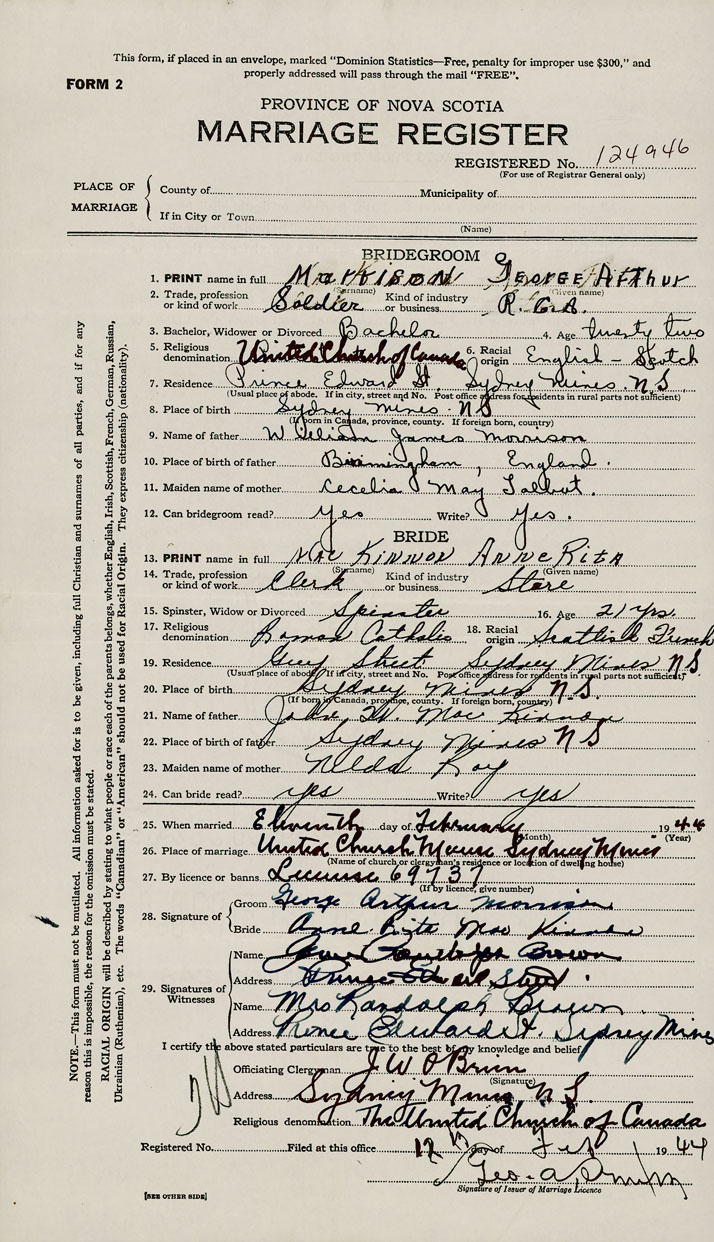 This form, if placed in an envelope, marked "Dominion Statistics—Free, penalty for improper use $300," and
properly addressed will pass through the mail "FREE".
FORM 2
PROVINCE OF NOVA SCOTIA
MARRIAGE REGISTER
REGISTERED No. 124946
(For use of Registrar General only)
PLACE OF MARRIAGE
County of Municipality of
If in City or Town
(Name)
BRIDEGROOM
1. PRINT name in full Morrison George Arthur
(Surname) (Given name)
2. Trade, profession or kind of work Soldier Kind of industry or business R.C.A.
3. Bachelor, Widower or Divorced Bachelor 4. Age twenty two
5. Religious denomination United Church of Canada 6. Racial origin English - Scotch
7. Residence Prince Edward St, Sydney Mines N S
(Usual place of abode. If in city, street and No. Post office address for residents in rural parts not sufficient)
8. Place of birth Sydney Mines N S
(If born in Canada, province, county. If foreign born, country)
9. Name of father William James Morrison
10. Place of birth of father Birmingham, England.
11. Maiden name of mother Cecelia May Talbut.
12. Can bridegroom read? yes Write? yes.
BRIDE
13. PRINT name in full Mac Kinnon Anne Rita
(Surname) (Given name)
14. Trade, profession or kind of work Clerk Kind of industry or business Store
15. Spinster, Widow or Divorced Spinster 16. Age 21 Yrs.
17. Religious denomination Roman Catholic 18. Racial origin Scotlish French
19. Residence Street Sydney Mines N S
(Usual place of abode If in city, street and No. Post office address for residents in rural parts not sufficient)
20. Place of birth Sydney Mines N.S.
(If born in Canada, province, county. If foreign born, country)
21. Name of father John W. Mac Kinnon
22. Place of birth of father Sydney Mines N S
23. Maiden name of mother Nelda Roy
24. Can bride read? yes Write? yes
25. When married Eleventh day of February 1944
(Month) (Year)
26. Place of marriage United Church Manse Sydney Mines
(Name of church or clergyman's residence or location of dwelling house)
27. By licence or banns License 69737
(If by licence, give number)
28. Signature of
Groom George Arthur Morrison
Bride Anne Rita Mac Kinnon
29. Signatures of Witnesses
Name Randolph Brown
Address Prince Edward Street.
Name Mrs Randolph Brown.
Address Prince Edward St. Sydney Mines
I certify the above stated particulars are true to the best of my knowledge and belief
Officiating Clergyman J W O'Brien
(Signature)
Address Sydney Mines, N.S.
Religious denomination The United Church of Canada
Registered No. Filed at this office 12 th day of Feb 1944
Geo. A.
Signature of Issuer of Marriage Licence
[SEE OTHER SIDE]
NOTE.—This form must not be mutilated. All information asked for is to be given, including full Christian and surnames of all parties, and if for any
reason this is impossible, the reason for the omission must be stated.
RACIAL ORIGIN will be described by stating to what people or race each of the parents belongs, whether English, Irish, Scottish, French, German, Russian,
Ukrainian (Ruthenian), etc. The words "Canadian" or "American" should not be used for Racial Origin. They express citizenship (nationality).